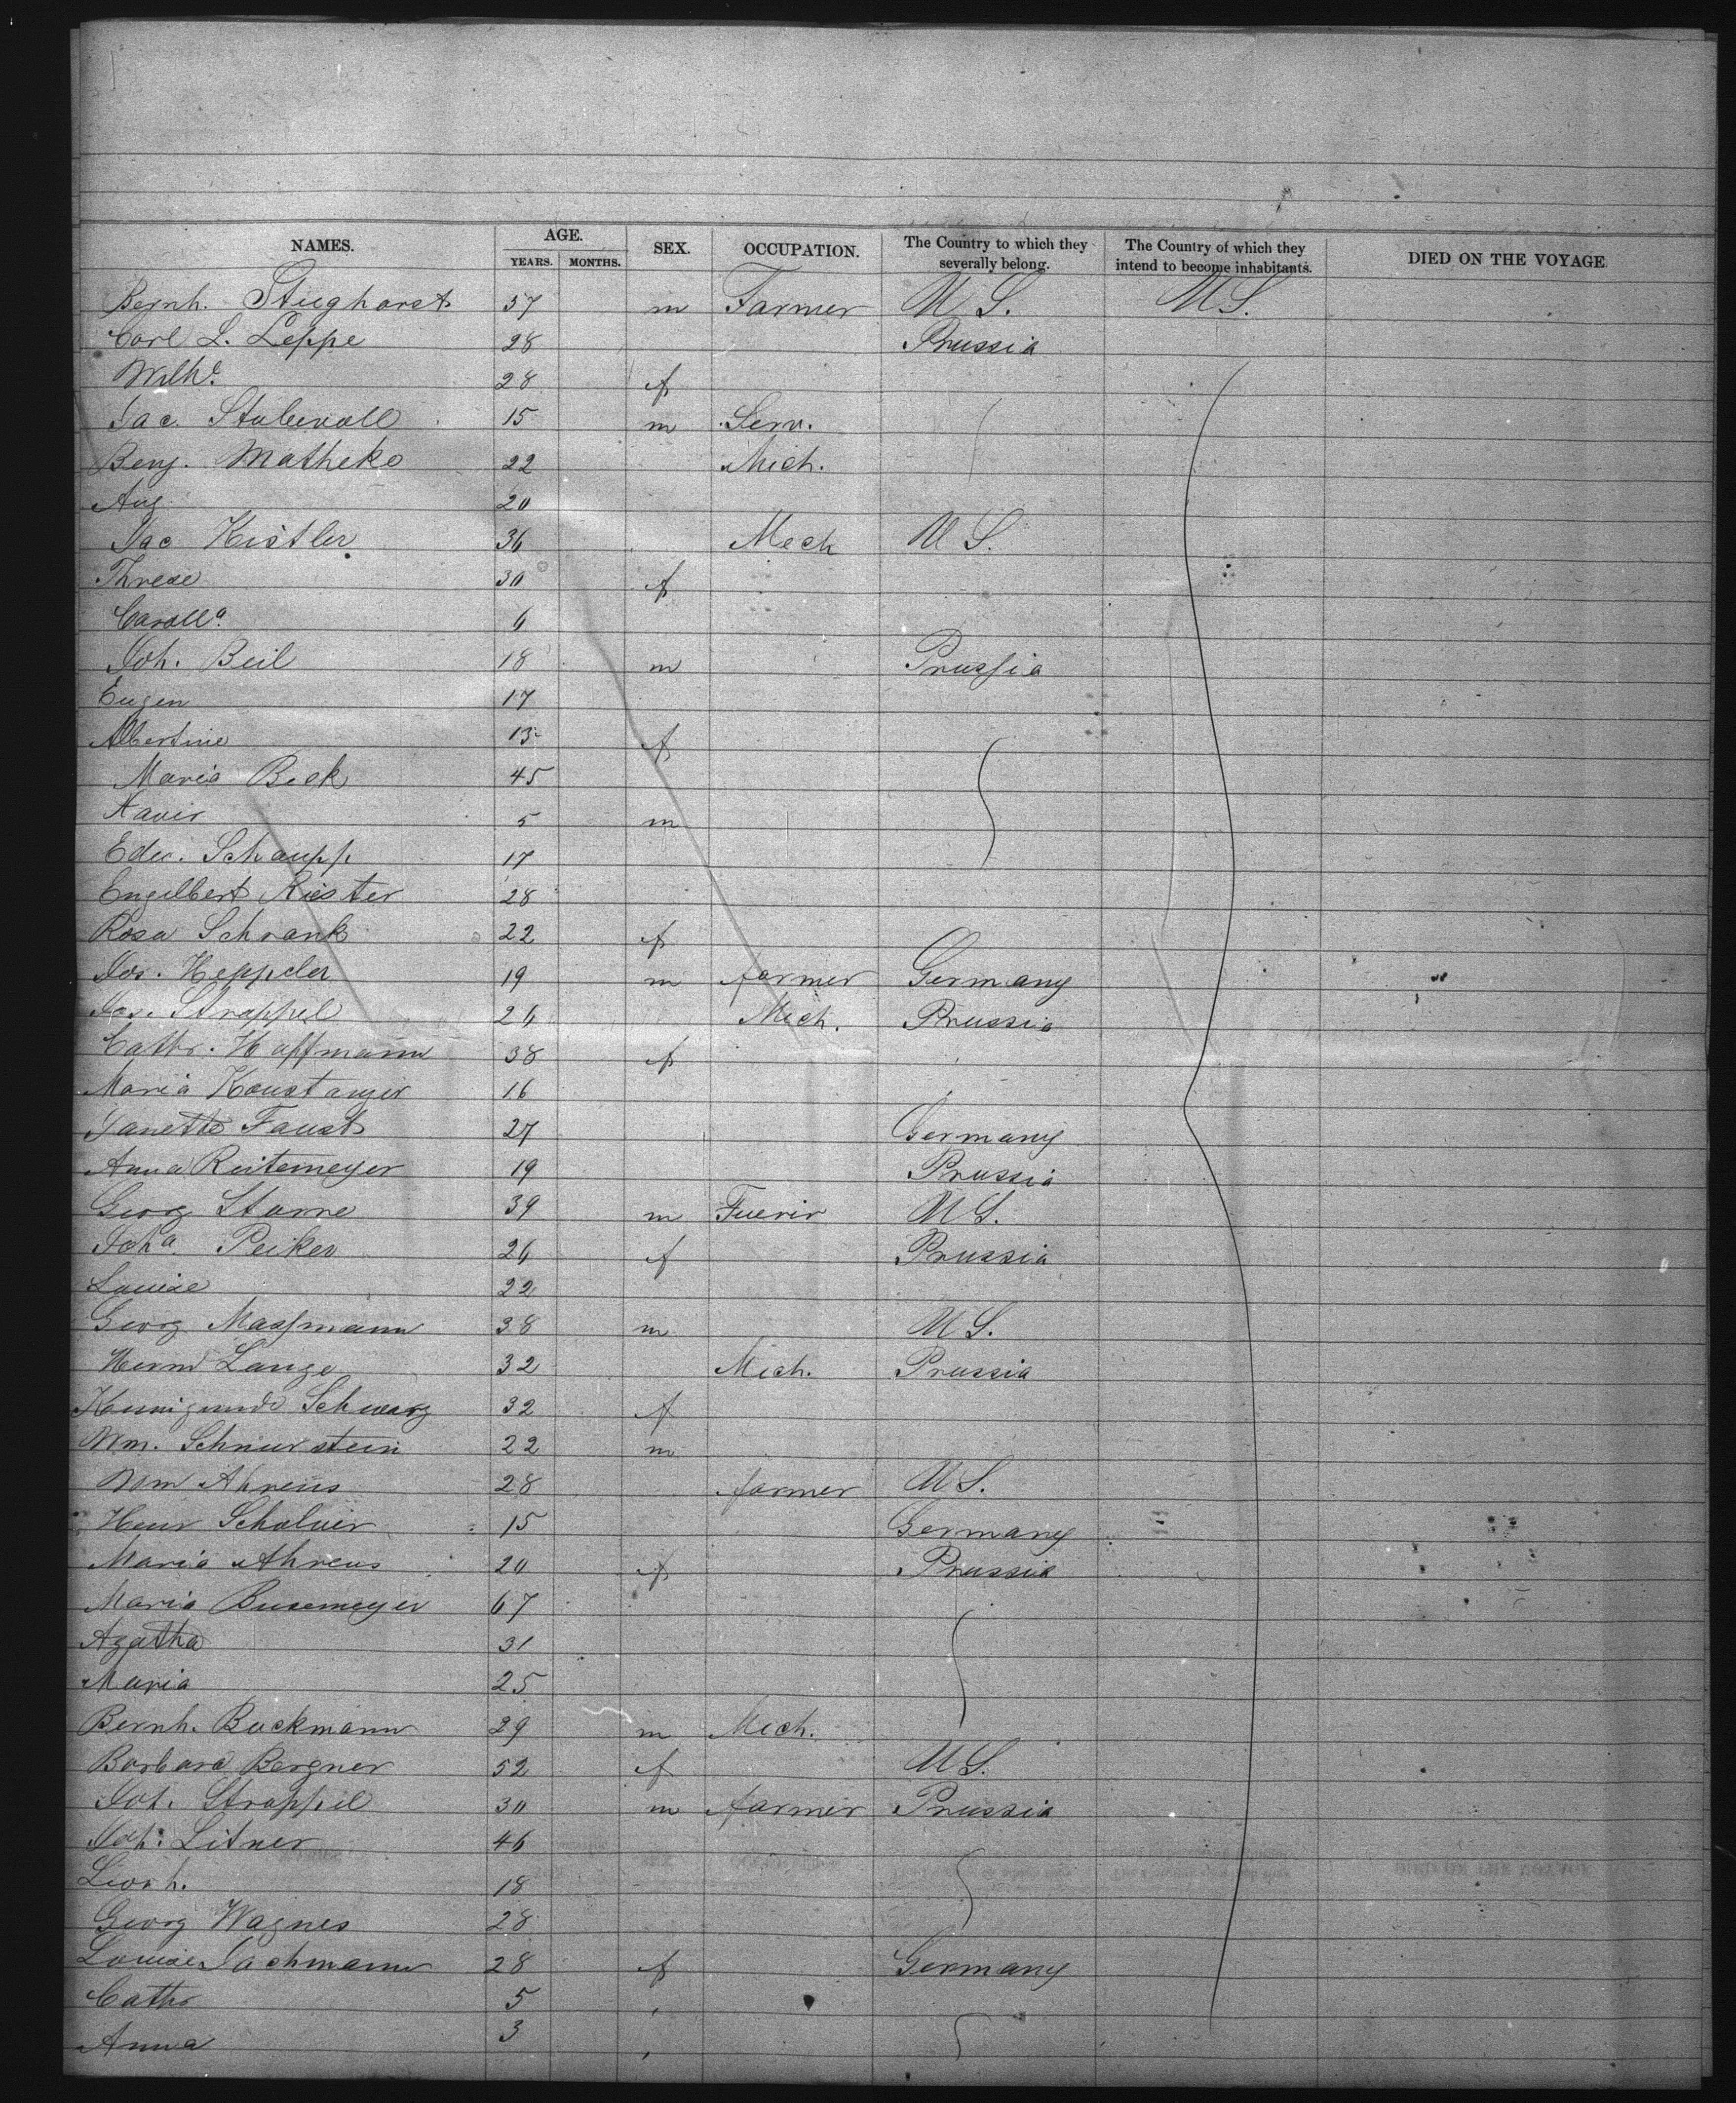 NAMES. AGE. SEX. OCCUPATION. The Country to which they severally belong. The Country of which they intend to become inhabitants. DIED ON THE VOYAGE.
YEARS. MONTHS.
Bernh. Stieghorst 57 m Farmer U S. U S.
Carl L. Leppe 28 Prussia
Wilhe. 28 f
Jac. 15 m Serv.
Benj. Matheko 22 Mech.
Aug. 20
Jac Kistler 36 Mech U S.
Threse 30 f
6
Joh. Beil 18 m Prussia
Eugen 17
Albertine 13 f
Maria Beck 45
Xaver 5 m
Edw. Schaupp 17
Engelbert Riester 28
Rosa Schrank 22 f
Jos. Heppeler 19 m farmer Germany
Jos. Strappel 26 Mech. Prussia
Cathr. Hoffmann 38 f
Maria Konstanzer 16
Janette Faust 27 Germany
Anna Reitemeyer 19 Prussia
Georg Starne 39 m U S.
Joha. Peiker 26 f Prussia
Louise 22
Georg Massmann 38 m U S.
Herm Lange 32 Mech. Prussia
Kunigunde Schwarz 32 f
Wm. Schnierstein 22 m
Wm Ahrens 28 farmer U S.
Henr 15 Germany
Maria Ahrens 20 f Prussia
Maria Busemeyer 67
Agatha 31
Maria 25
Bernh. Buckmann 29 m Mech.
Barbara Bergner 52 f U S.
Joh. Strappel 30 m farmer Prussia
Joh. Litner 46
Leonh. 18
Georg Wagner 28
Louise Jachmann 28 f Germany
Cathr 5
Anna 3